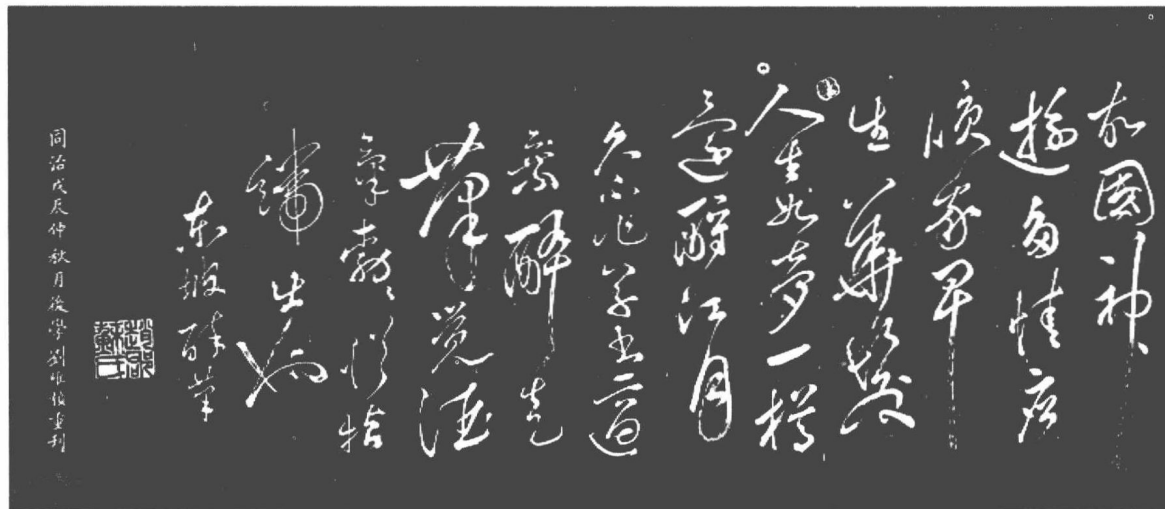 故國神
遊多情應
笑我早
生華髮
人生如夢一樽
還酹江月
久不作草書適
乘醉走
筆覺酒
氣勃勃似指
端出也
東坡醉筆
趙郡蘇氏
同治戊辰仲秋月後學劉維楨重刊